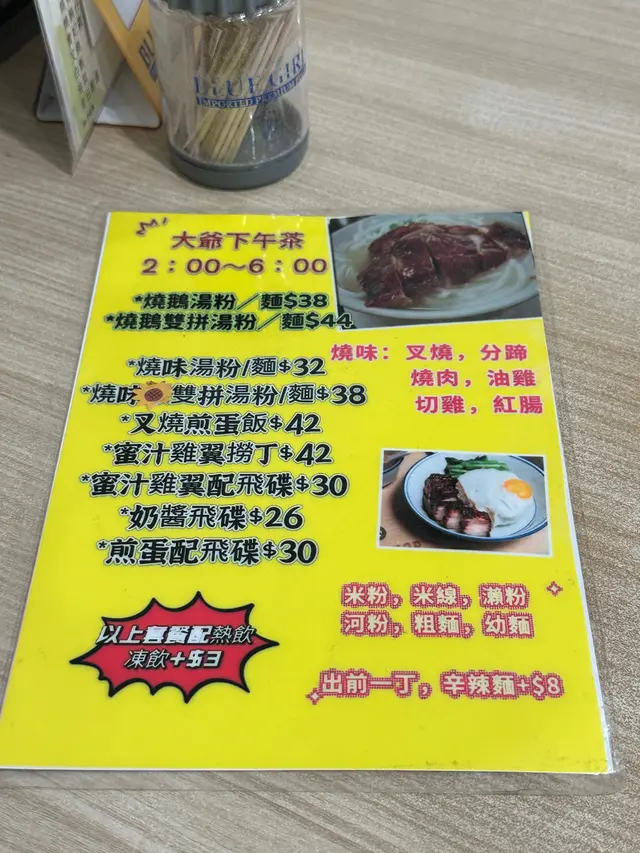 BLUE GIRL
IMPORTED PREMIUM
大爺下午茶
2：00～6：00
*燒鵝湯粉／麵$38
*燒鵝雙拼湯粉／麵$44
*燒味湯粉/麵$32
*燒味雙拼湯粉/麵$38
*叉燒煎蛋飯$42
*蜜汁雞翼撈丁$42
*蜜汁雞翼配飛碟$30
*奶醬飛碟$26
*煎蛋配飛碟$30
燒味：叉燒，分蹄
燒肉，油雞
切雞，紅腸
米粉，米線，瀨粉
河粉，粗麵，幼麵
出前一丁，辛辣麵+$8
以上套餐配熱飲
凍飲+$3